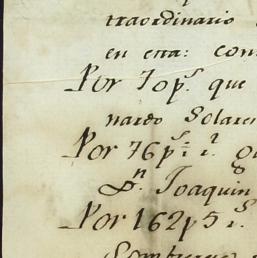 traordinario
en esta: con
Por 70 p.s que
nardo Solare
Por 76 p.s 2 r.s
D.n Joaquin
Por 162 p 5 r.s